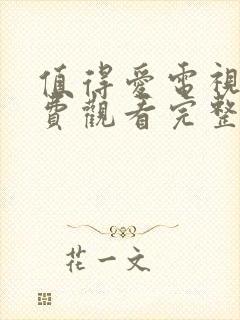 值得愛電視
費觀看完整
花一文